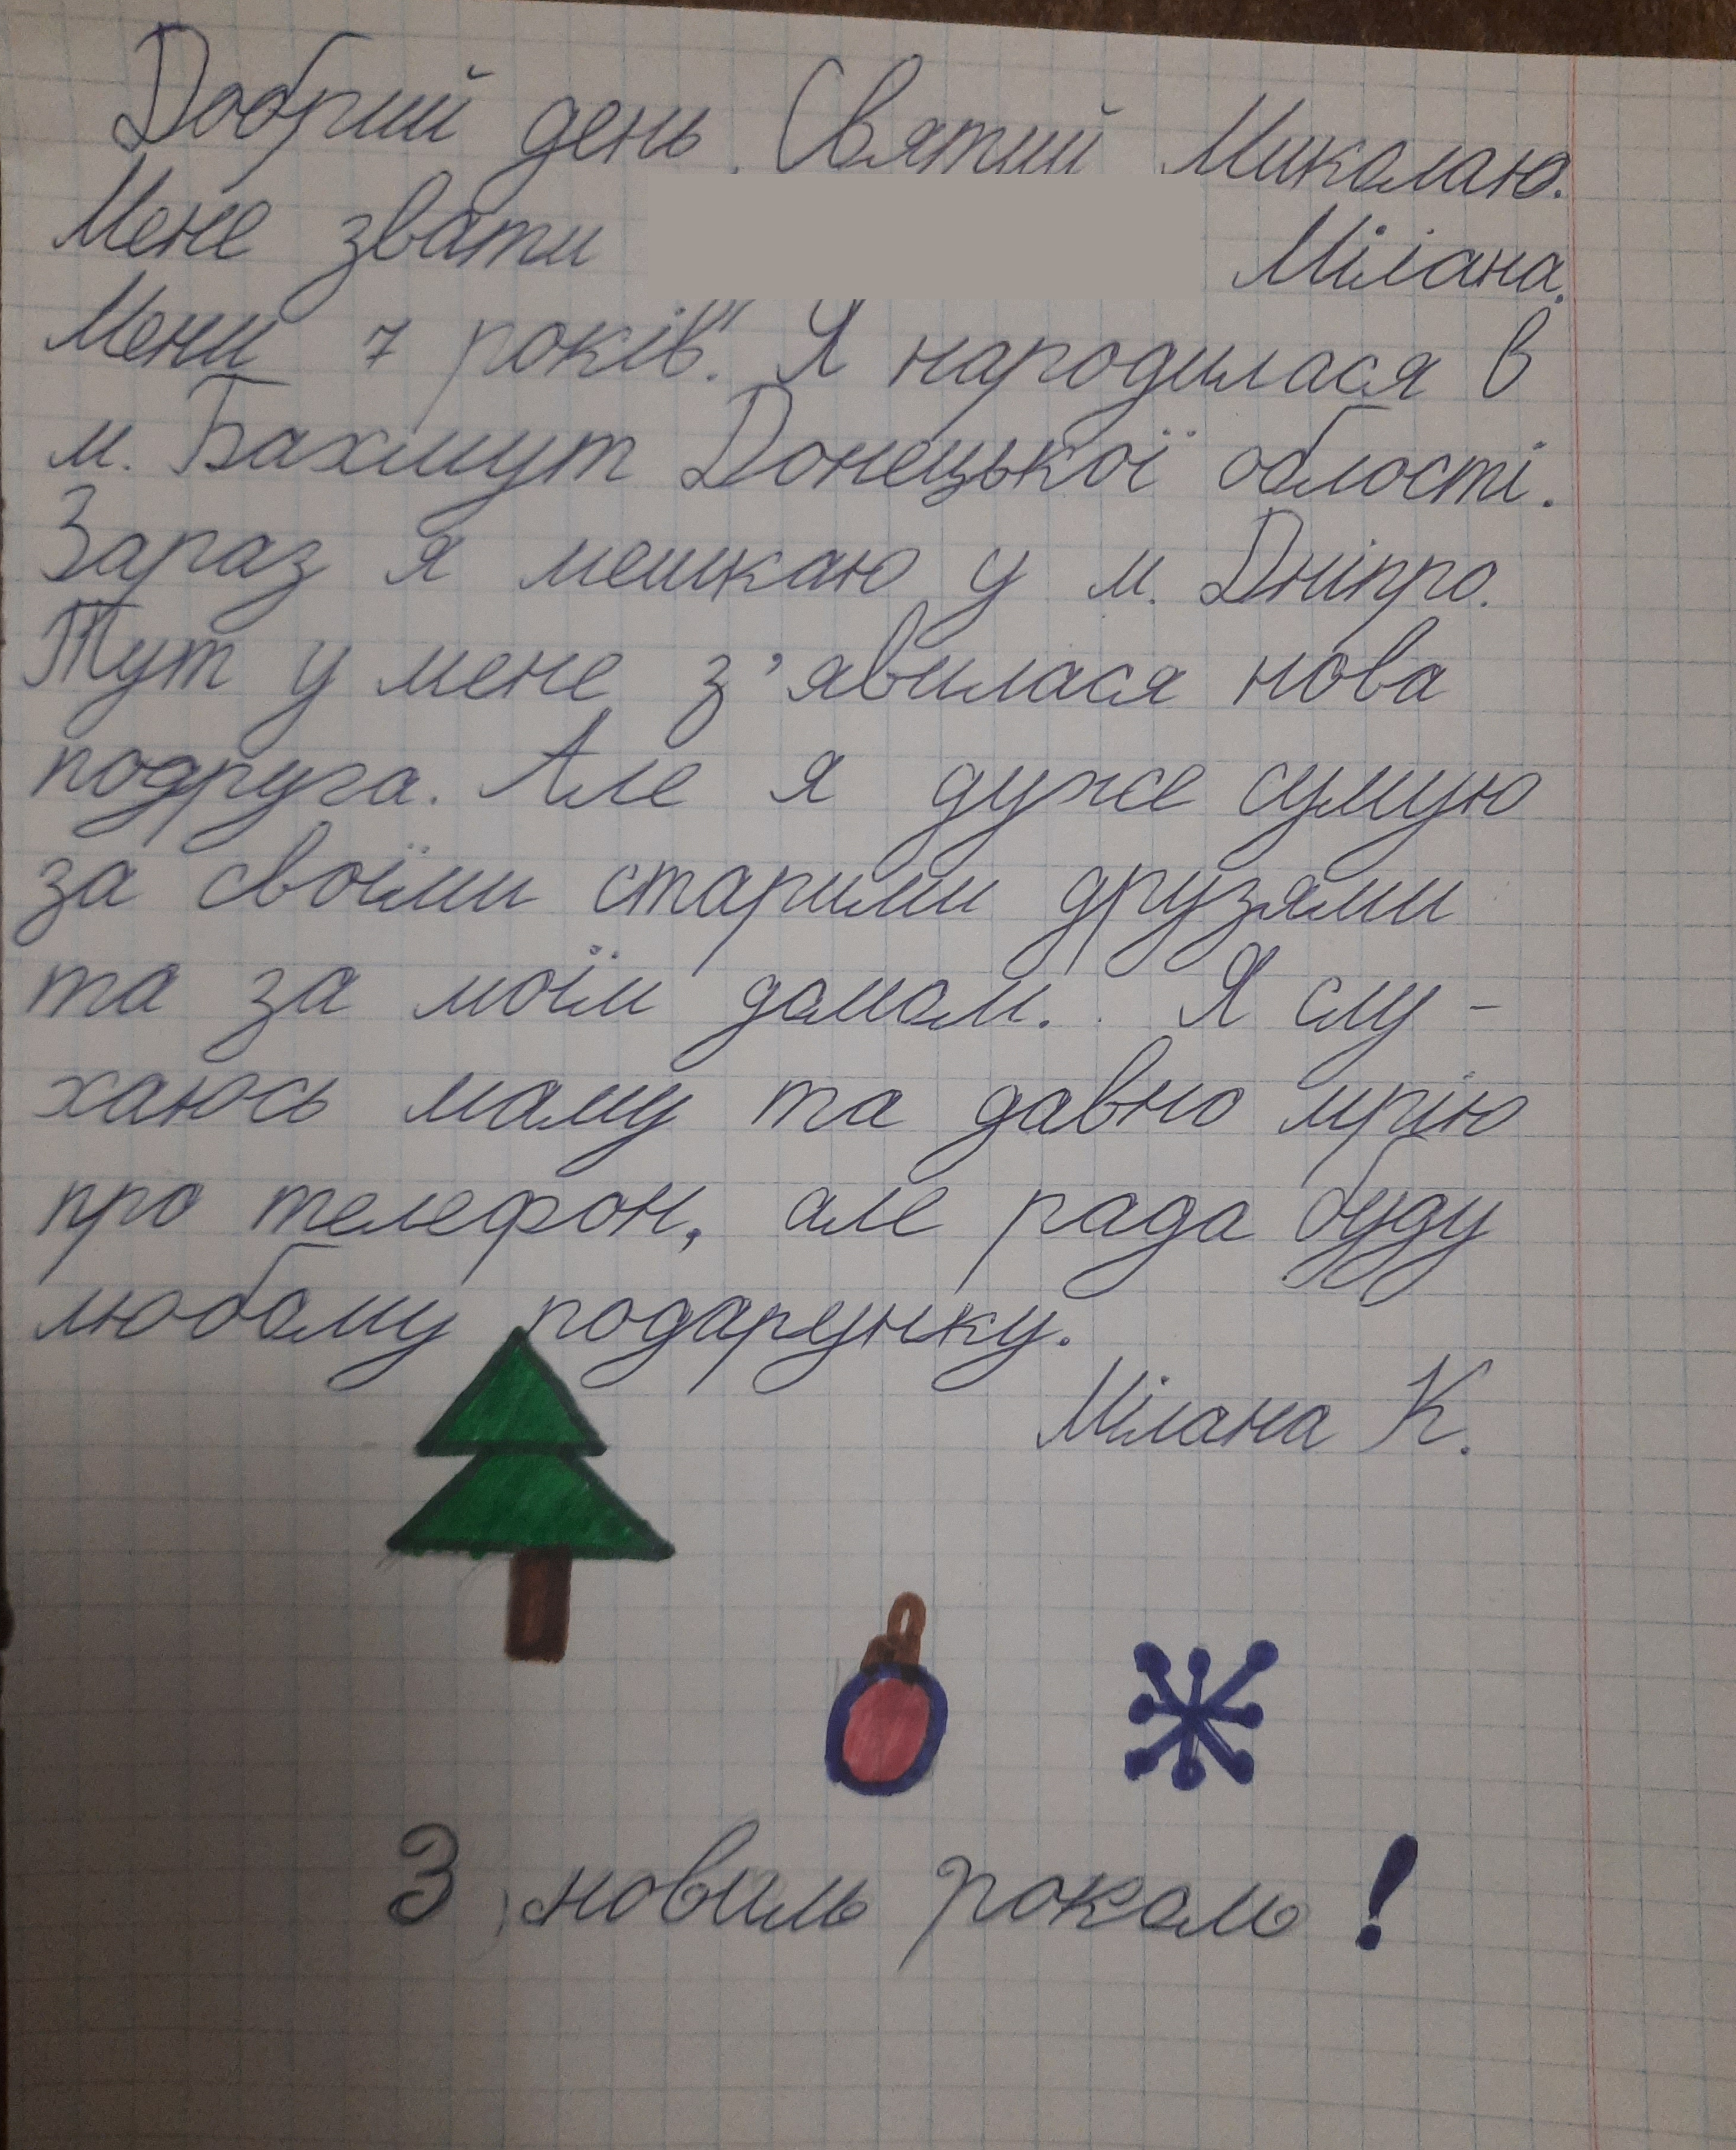 Добрий день. Святий Миколаю.
Мене звати Мілана.
Мени 7 років. Я народилася в
м. Бахмут Донецької області.
Зараз я мешкаю у м. Дніпро.
Тут у мене з'явилася нова
подруга. Але я дуже сумую
за своїми старими друзями
та за моїм домом. Я слу-
хаюсь маму та давно мрію
про телефон, але рада буду
любому подарунку.
Мілана К.
З новим роком!